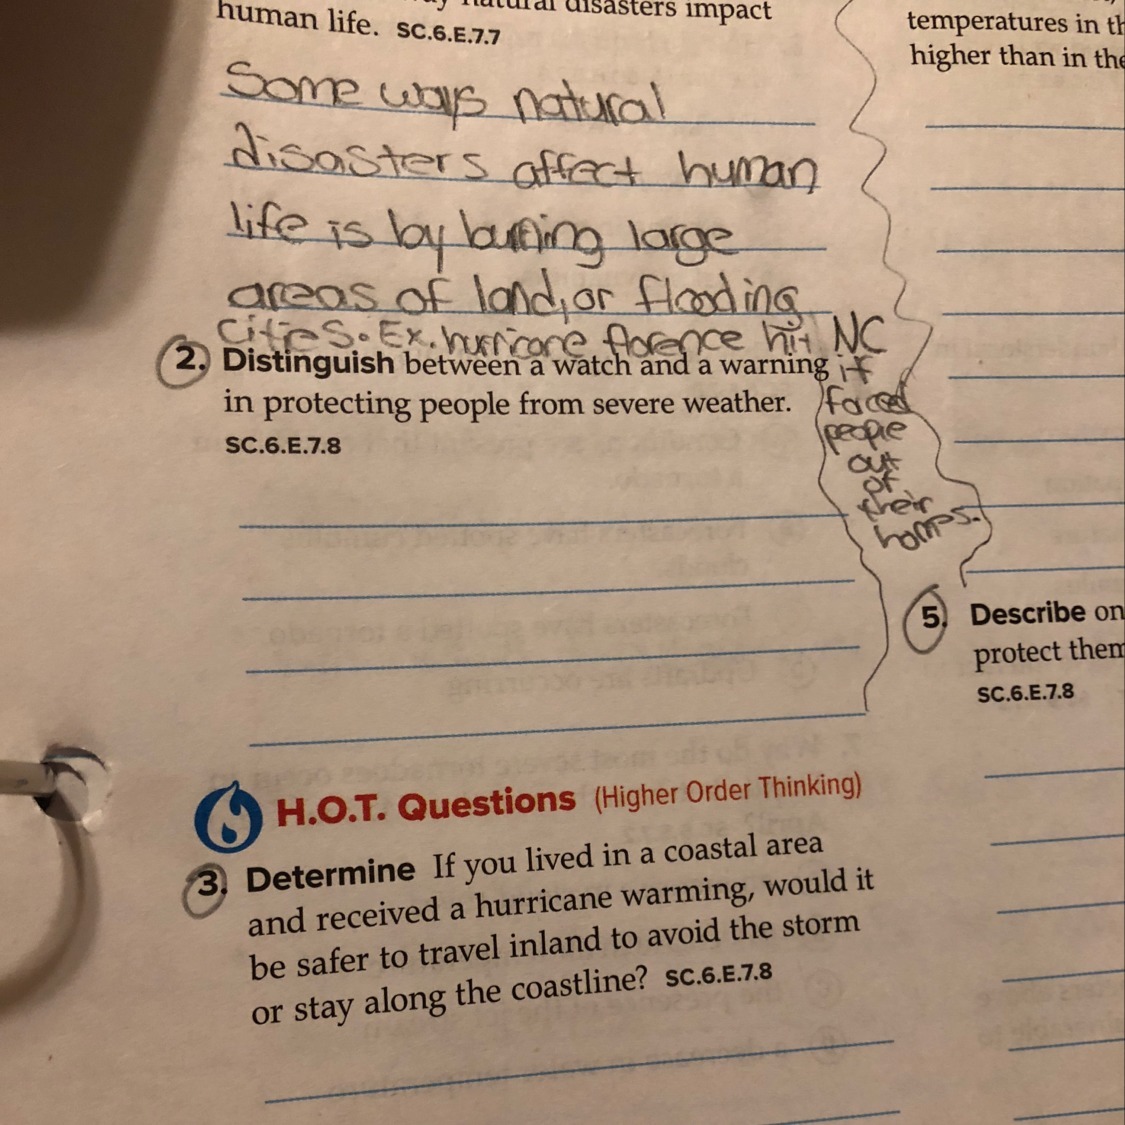 natural disasters impact
human life. SC.6.E.7.7
Some ways natural
disasters affect human
life is by burning large
areas of land, or flooding
cities. Ex. hurricane florence hit NC
it
forced
people
out
of
their
homes.
2. Distinguish between a watch and a warning
in protecting people from severe weather.
SC.6.E.7.8
H.O.T. Questions (Higher Order Thinking)
3. Determine If you lived in a coastal area
and received a hurricane warming, would it
be safer to travel inland to avoid the storm
or stay along the coastline? SC.6.E.7.8
temperatures in
higher than in
5. Describe
protect
SC.6.E.7.8